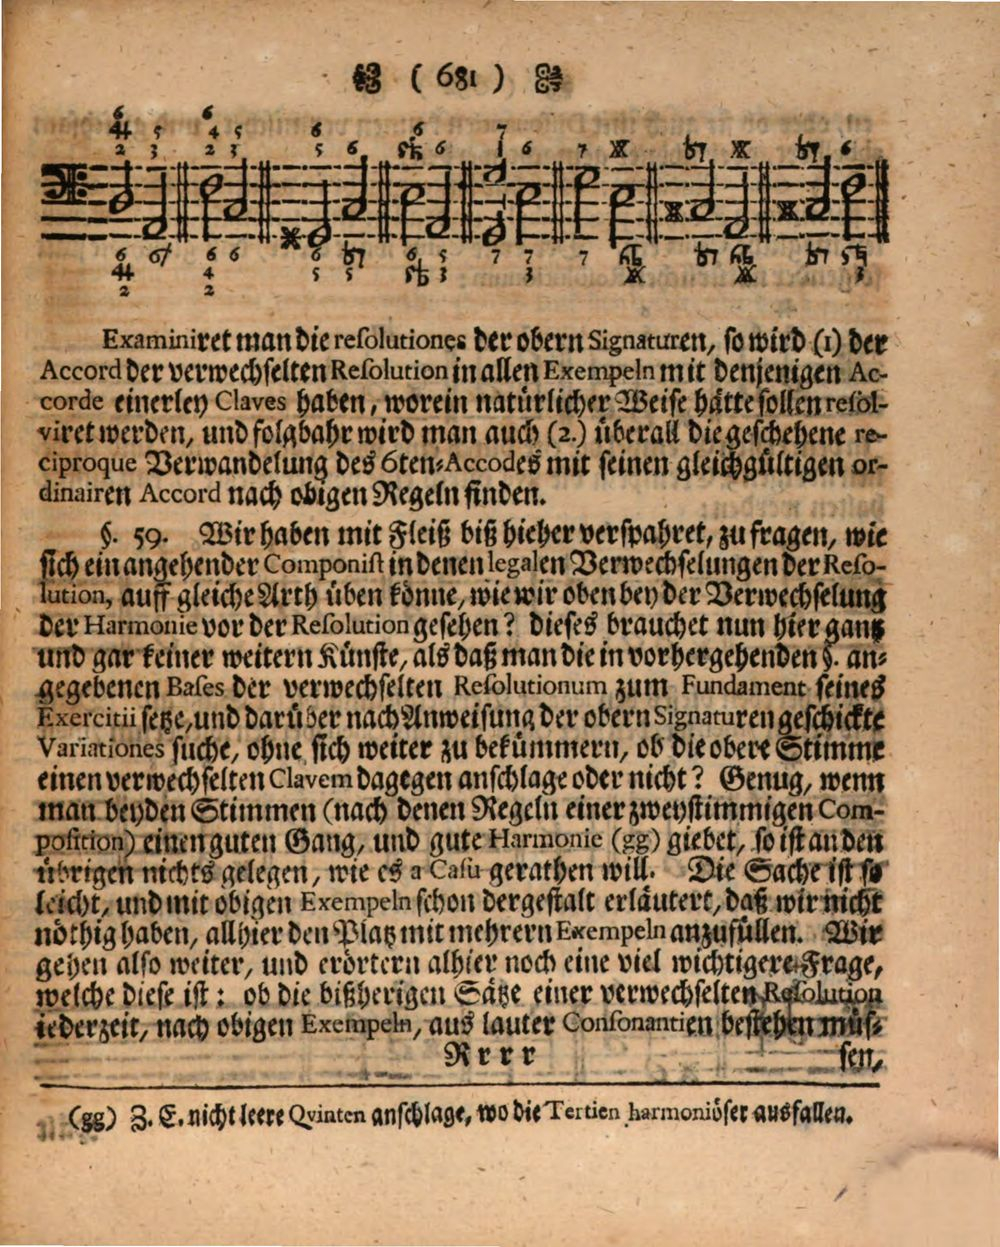 ( 681 )
Examiniret man die resolutiones der obern Signaturen, so wird (1) der
Accord der verwechselten Resolution in allen Exempeln mit denjenigen Ac-
corde einerley Claves haben, worein natürlicher Weise hätte sollen resol-
viret werden, und folgbahr wird man auch (2.) überall die geschehene re-
ciproque Verwandelung des 6ten-Accodes mit seinen gleichgültigen or-
dinairen Accord nach obigen Regeln finden.
§. 59. Wir haben mit Fleiß biß hieher verspahret, zu fragen, wie
sich ein angehender Componist in denen legalen Verwechselungen der Reso-
lution, auff gleiche Arth üben könne, wie wir oben bey der Verwechselung
der Harmonie vor der Resolution gesehen? dieses brauchet nun hier gantz
und gar keiner weitern Künste, als daß man die in vorhergehenden §. an-
gegebenen Bases der verwechselten Resolutionum zum Fundament seines
Exercitii setze, und darüber nach Anweisung der obern Signaturen geschickte
Variationes suche, ohne sich weiter zu bekümmern, ob die obere Stimme
einen verwechselten Clavem dagegen anschlage oder nicht? Genug, wenn
man beyden Stimmen (nach denen Regeln einer zweystimmigen Com-
position) einen guten Gang, und gute Harmonie (gg) giebet, so ist an den
übrigen nichts gelegen, wie es a Casu gerathen will. Die Sache ist so
leicht, und mit obigen Exempeln schon dergestalt erläutert, daß wir nicht
nöthig haben, allhier den Platz mit mehrern Exempeln anzufüllen. Wir
gehen also weiter, und erörtern alhier noch eine viel wichtigere Frage,
welche diese ist: ob die bißherigen Sätze einer verwechselten Resolution
iederzeit, nach obigen Exempeln, aus lauter Consonantien bestehen müs-
Rrrr sen,
(gg) Z. E. nicht leere Qvinten anschlage, wo die Tertien harmoniöser ausfallen.